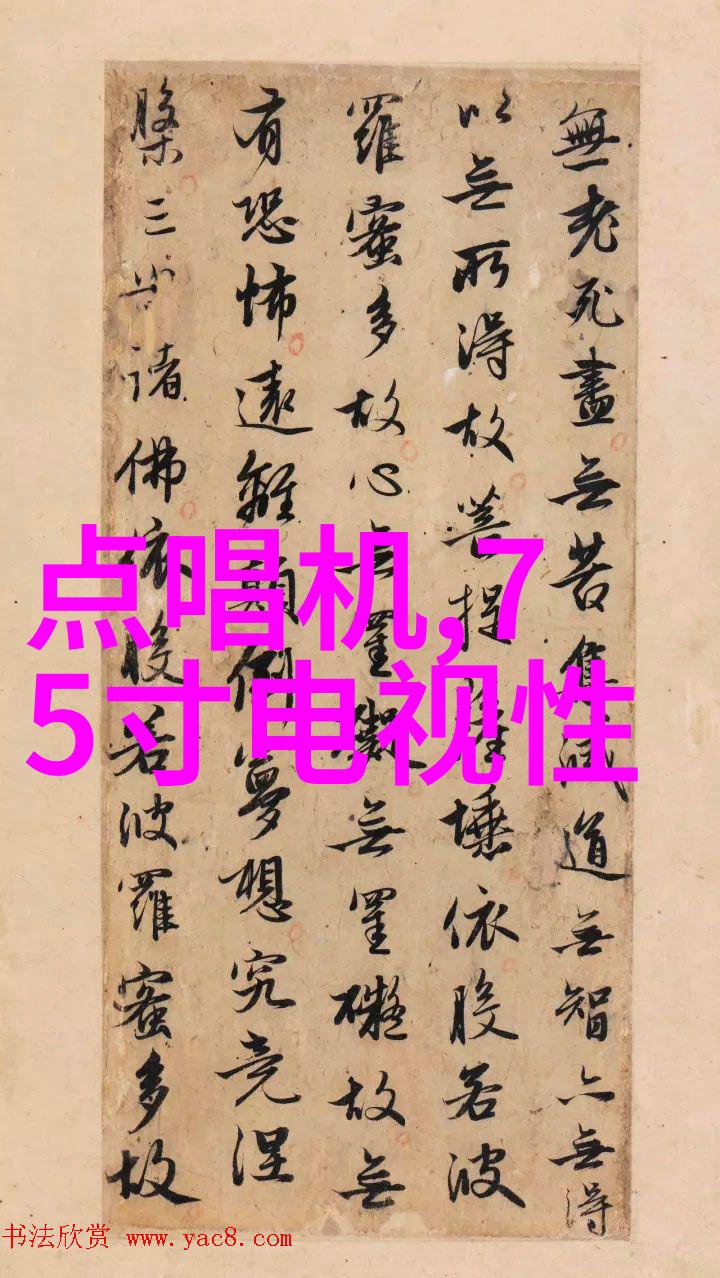 無老死盡無苦集滅道無智亦無得
以無所得故菩提薩埵依般若波
羅蜜多故心無罣礙無罣礙故無
有恐怖遠離顛倒夢想究竟涅
槃三世諸佛依般若波羅蜜多故
点唱机,7
5寸电视性
书法欣赏 www.yac8.com